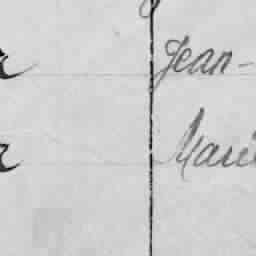 Jean-
Marie